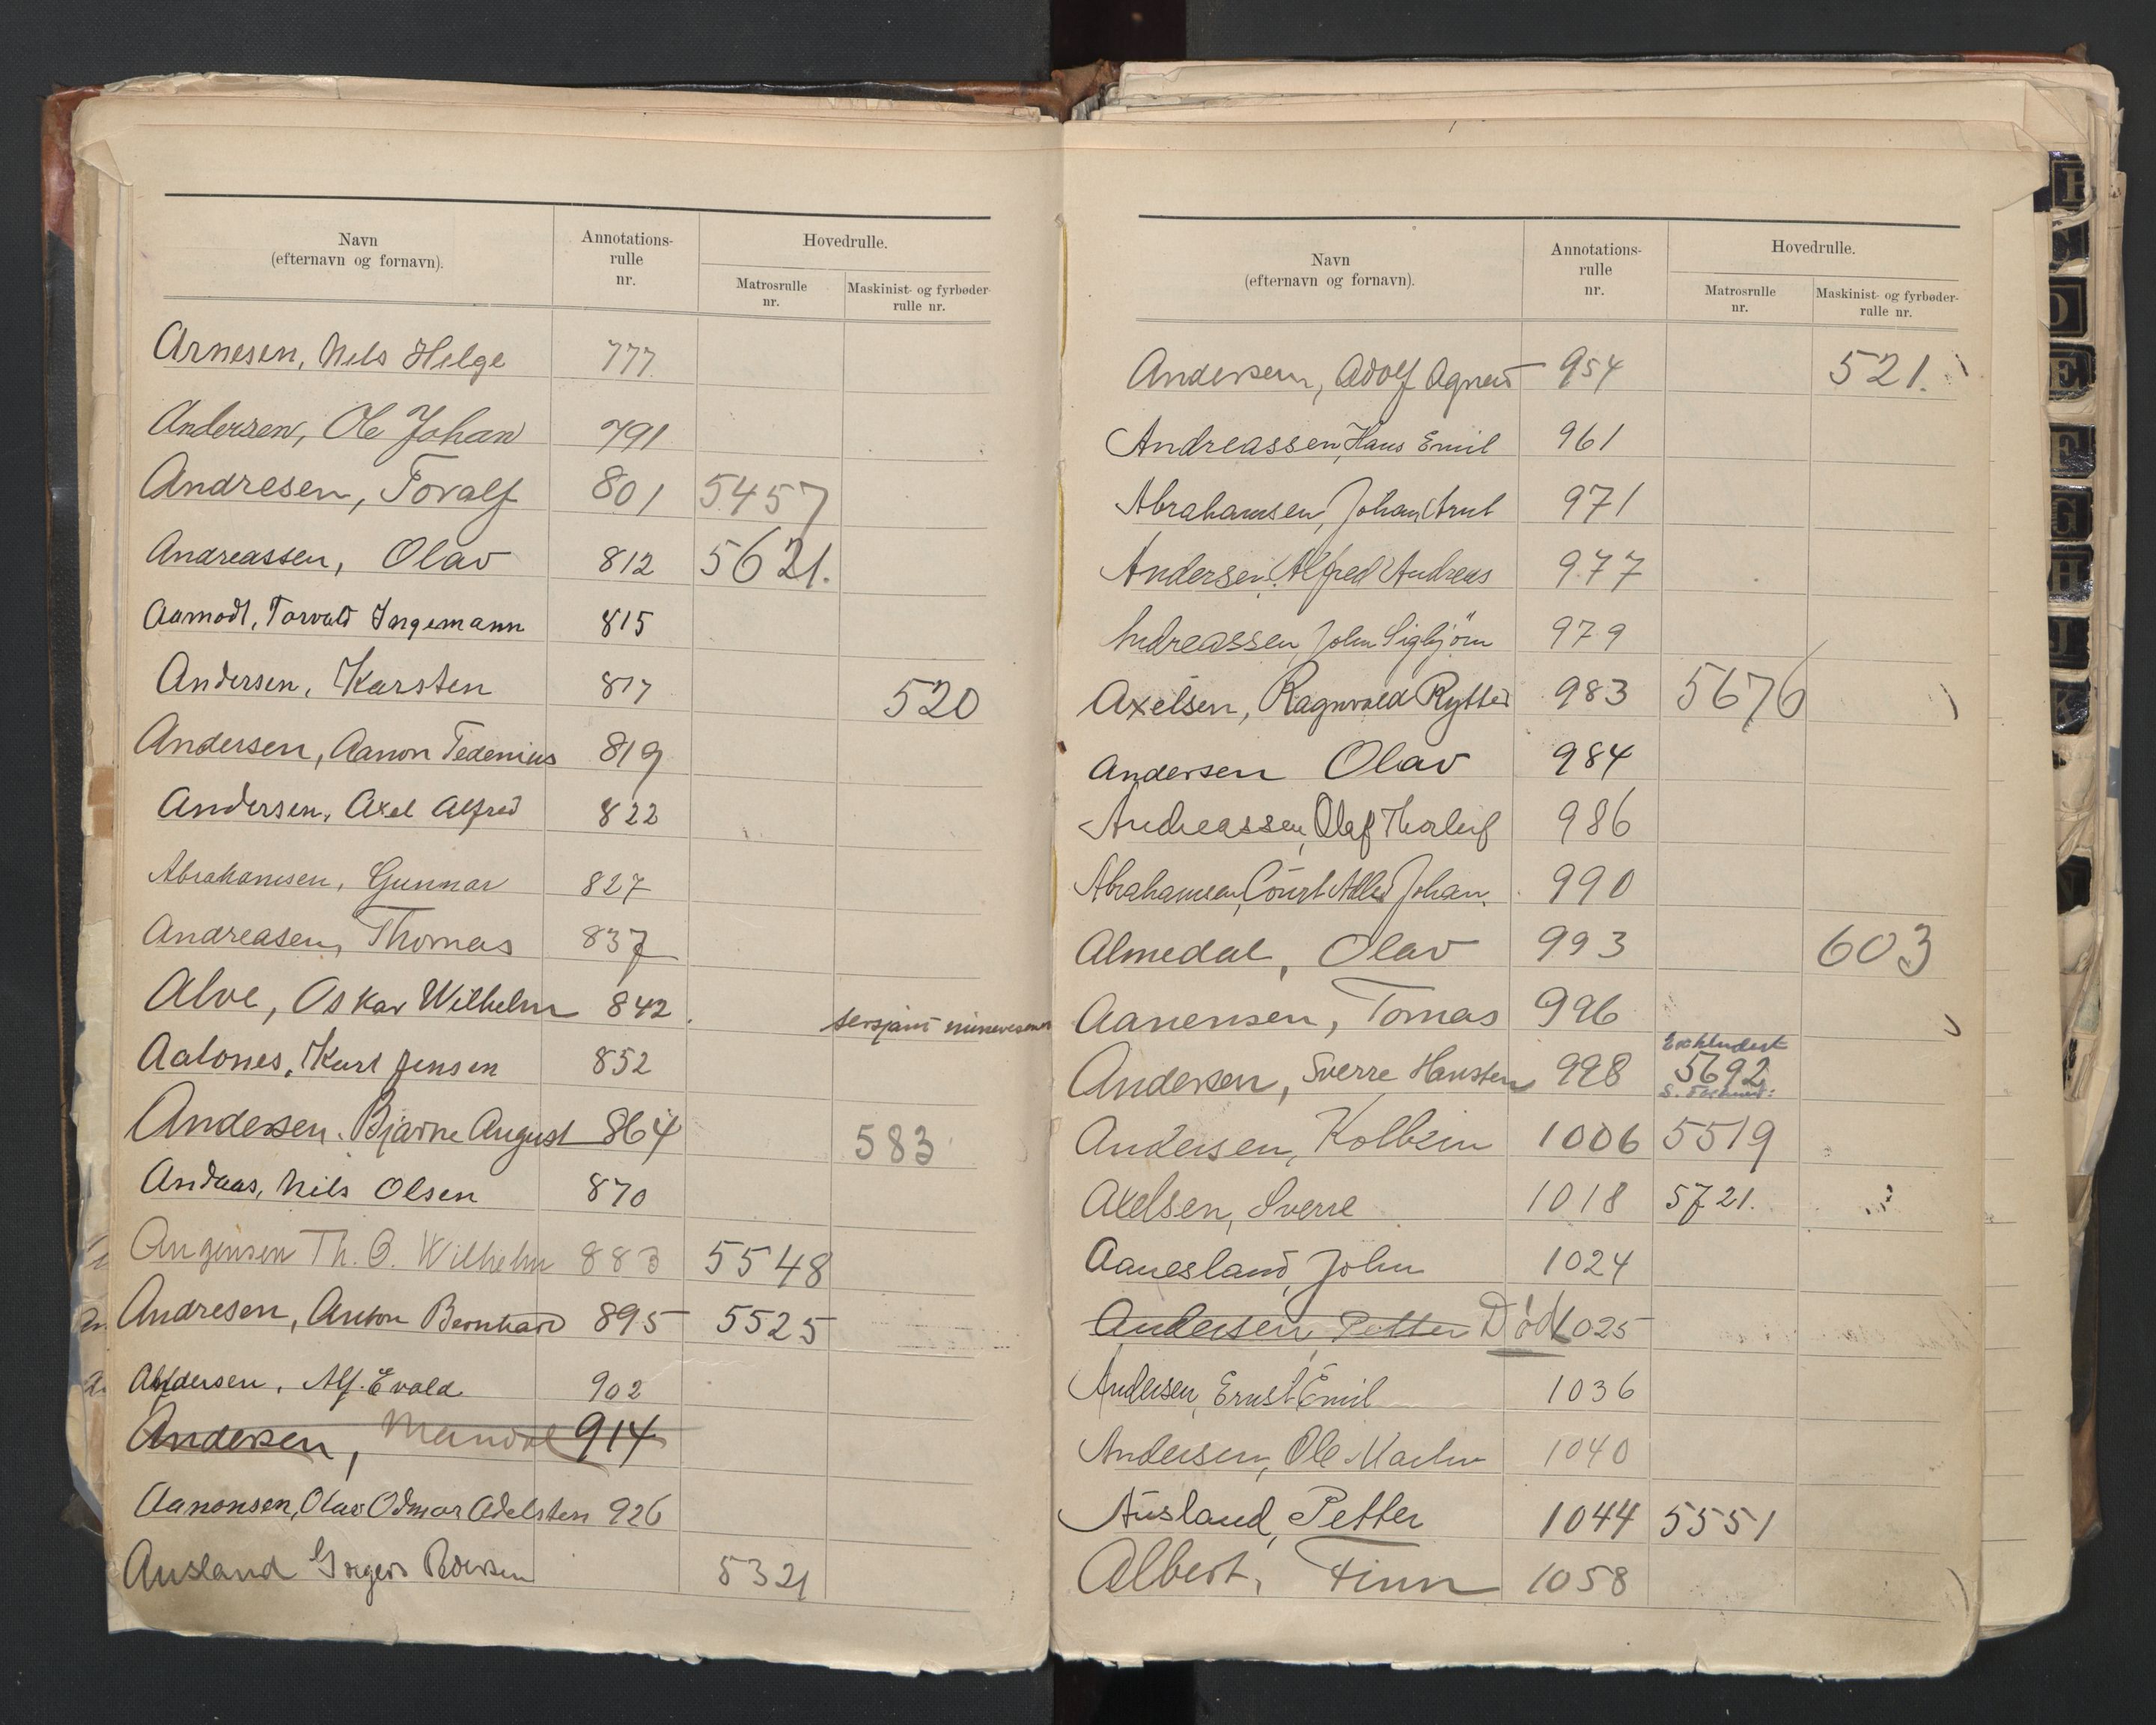 Navn
(efternavn og fornavn).
Annotations-
rulle
nr.
Hovedrulle.
Matrosrulle
nr.
Maskinist- og fyrbøder-
rulle nr.
Arnesen, Nils Helge 777
Andersen, Ole Johan 791
Andresen, Toralf 801 5457
Andreassen, Olav 812 5621.
Aamodt, Torvald Ingemann 815
Andersen, Karsten 817 520
Andersen, Aanon Tedenius 819
Andersen, Axel Alfred 822
Abrahamsen, Gunnar 827
Andreasen, Thomas 837
Alve, Oskar Wilhelm 842 sersjant minevesenet
Aalones, Kurt Jensen 852
Andersen, Bjarne August 864 583
Andaas, Nils Olsen 870
Angensen Th. O. Wilhelm 883 5548
Andresen, Anton Bernhard 895 5525
Andersen, Alf. Evald 902
Andersen, 914
Aanonsen, Olav Odmar Adelsten 926
Ausland 5321
Navn
(efternavn og fornavn).
Annotations-
rulle
nr.
Hovedrulle.
Matrosrulle
nr.
Maskinist- og fyrbøder-
rulle nr.
Andersen, Adolf Agnar 954 521.
Andreassen, Hans Emil 961
Abrahamsen, Johan Arnt 971
Andersen, Alfred Andreas 977
Andreassen, John Sigbjörn 979
Axelsen, Ragnvald Rytter 983 5676
Andersen Olav 984
Andreassen, Olaf Thorleif 986
Abrahamsen, Court Adler Johan. 990
Almedal, Olav 993 603
Aanensen, Tomas 996
Andersen, Sverre Hansten 998 5692
Andersen, Kolbein 1006 5519
Axelsen, Sverre 1018 5721.
Aanesland, John 1024
Andersen, Petter Död 1025
Andersen, Ernst Emil 1036
Andersen, Ole Martin 1040
Ausland, Petter 1044 5551
Albert, Finn 1058